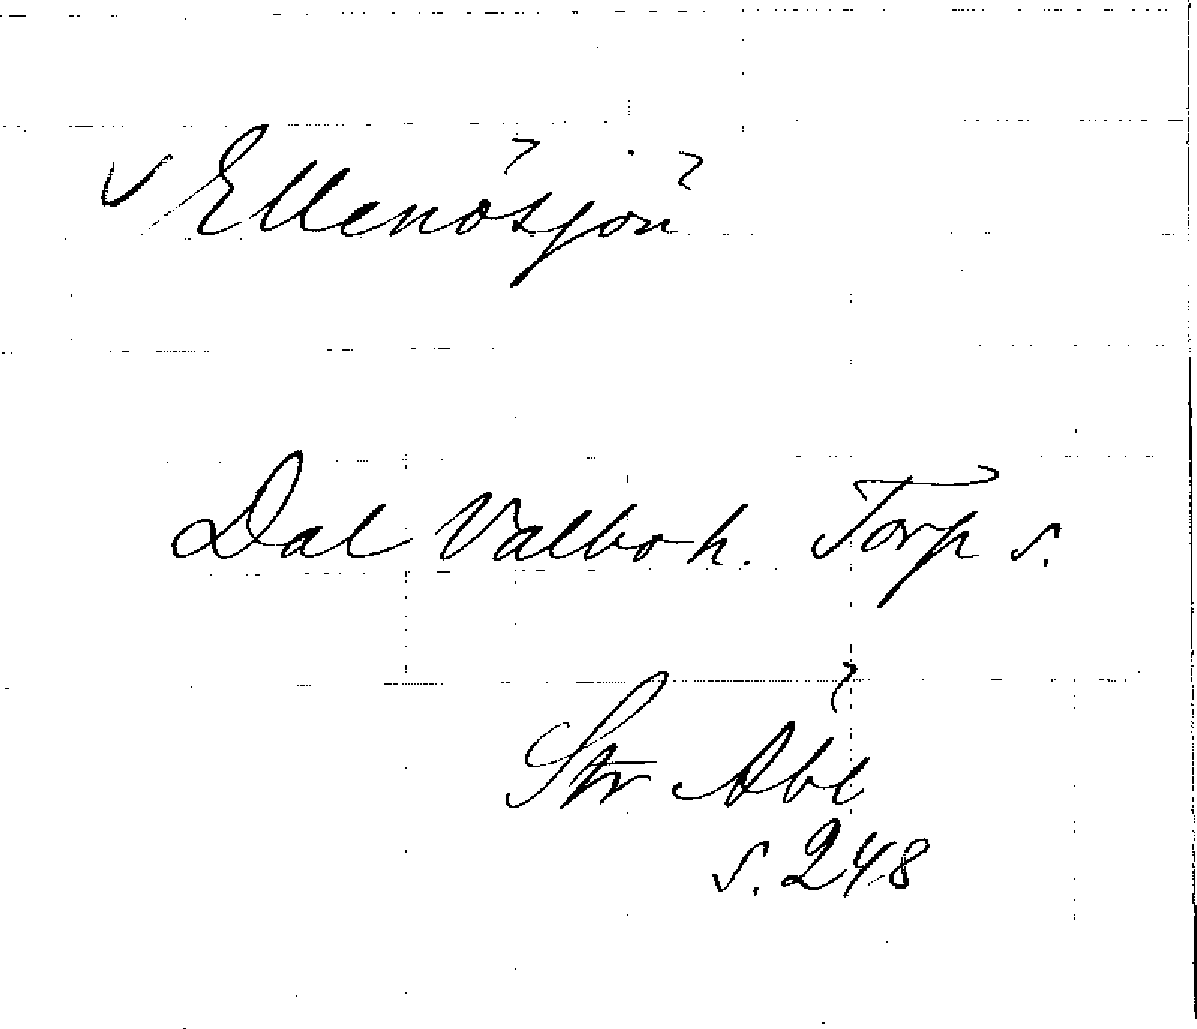 v Ellenösjön
Dal Valbo h. Torp s.
Str Åbl
s. 248